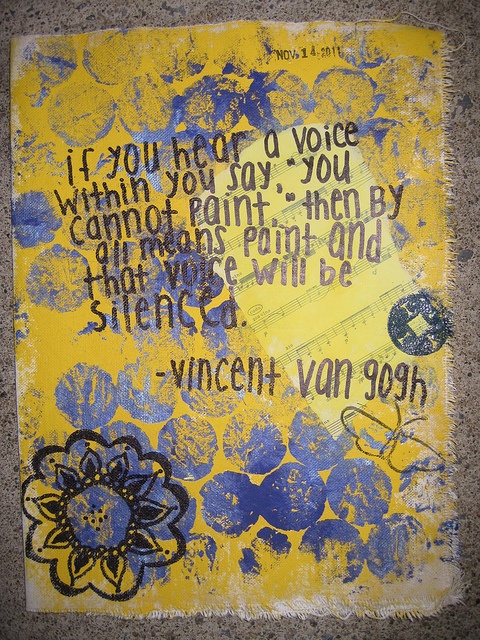 NOV. 14 2011
if you hear a voice
within you say, "you
cannot paint," then By
all means paint and
that voice will be
silenced.
-vincent van gogh